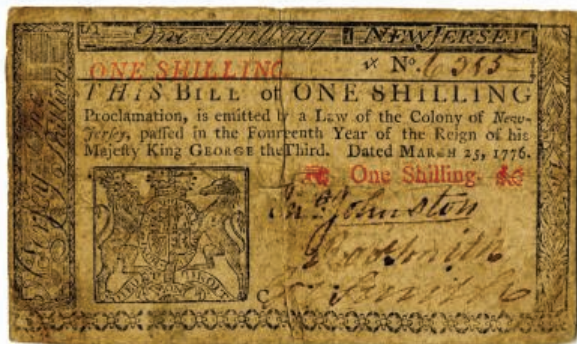 One Shilling NEW JERSEY
ONE SHILLING. No. 6355
THIS BILL of ONE SHILLING
Proclamation, is emitted by a Law of the Colony of New-
Jerſey, paſſed in the Fourteenth Year of the Reign of his
Majeſty King GEORGE the Third. Dated MARCH 25, 1776.
One Shilling.
Johnston
Smith
Smith
Jerſey
Shilling